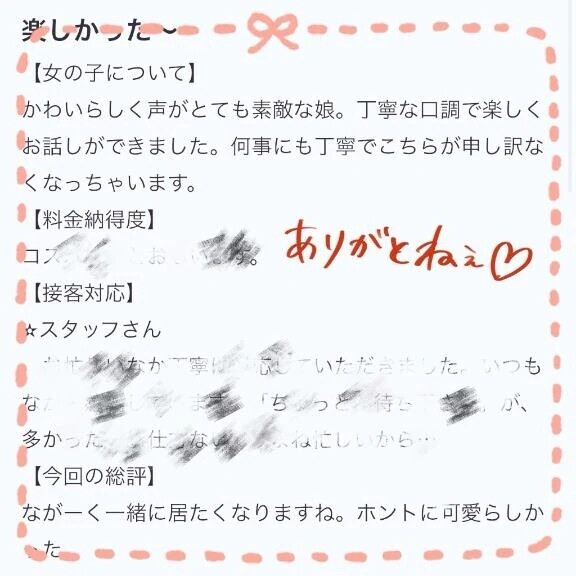 楽しかった～
【女の子について】
かわいらしく声がとても素敵な娘。丁寧な口調で楽しく
お話しができました。何事にも丁寧でこちらが申し訳な
くなっちゃいます。
【料金納得度】
コス
ありがとねぇ♡
【接客対応】
☆スタッフさん
なか丁寧に 応していただきました。いつも
な ます 「ちょっと 待ち 」が、
多かった 仕 ない よね忙しいから…
【今回の総評】
ながーく一緒に居たくなりますね。ホントに可愛らしか
った